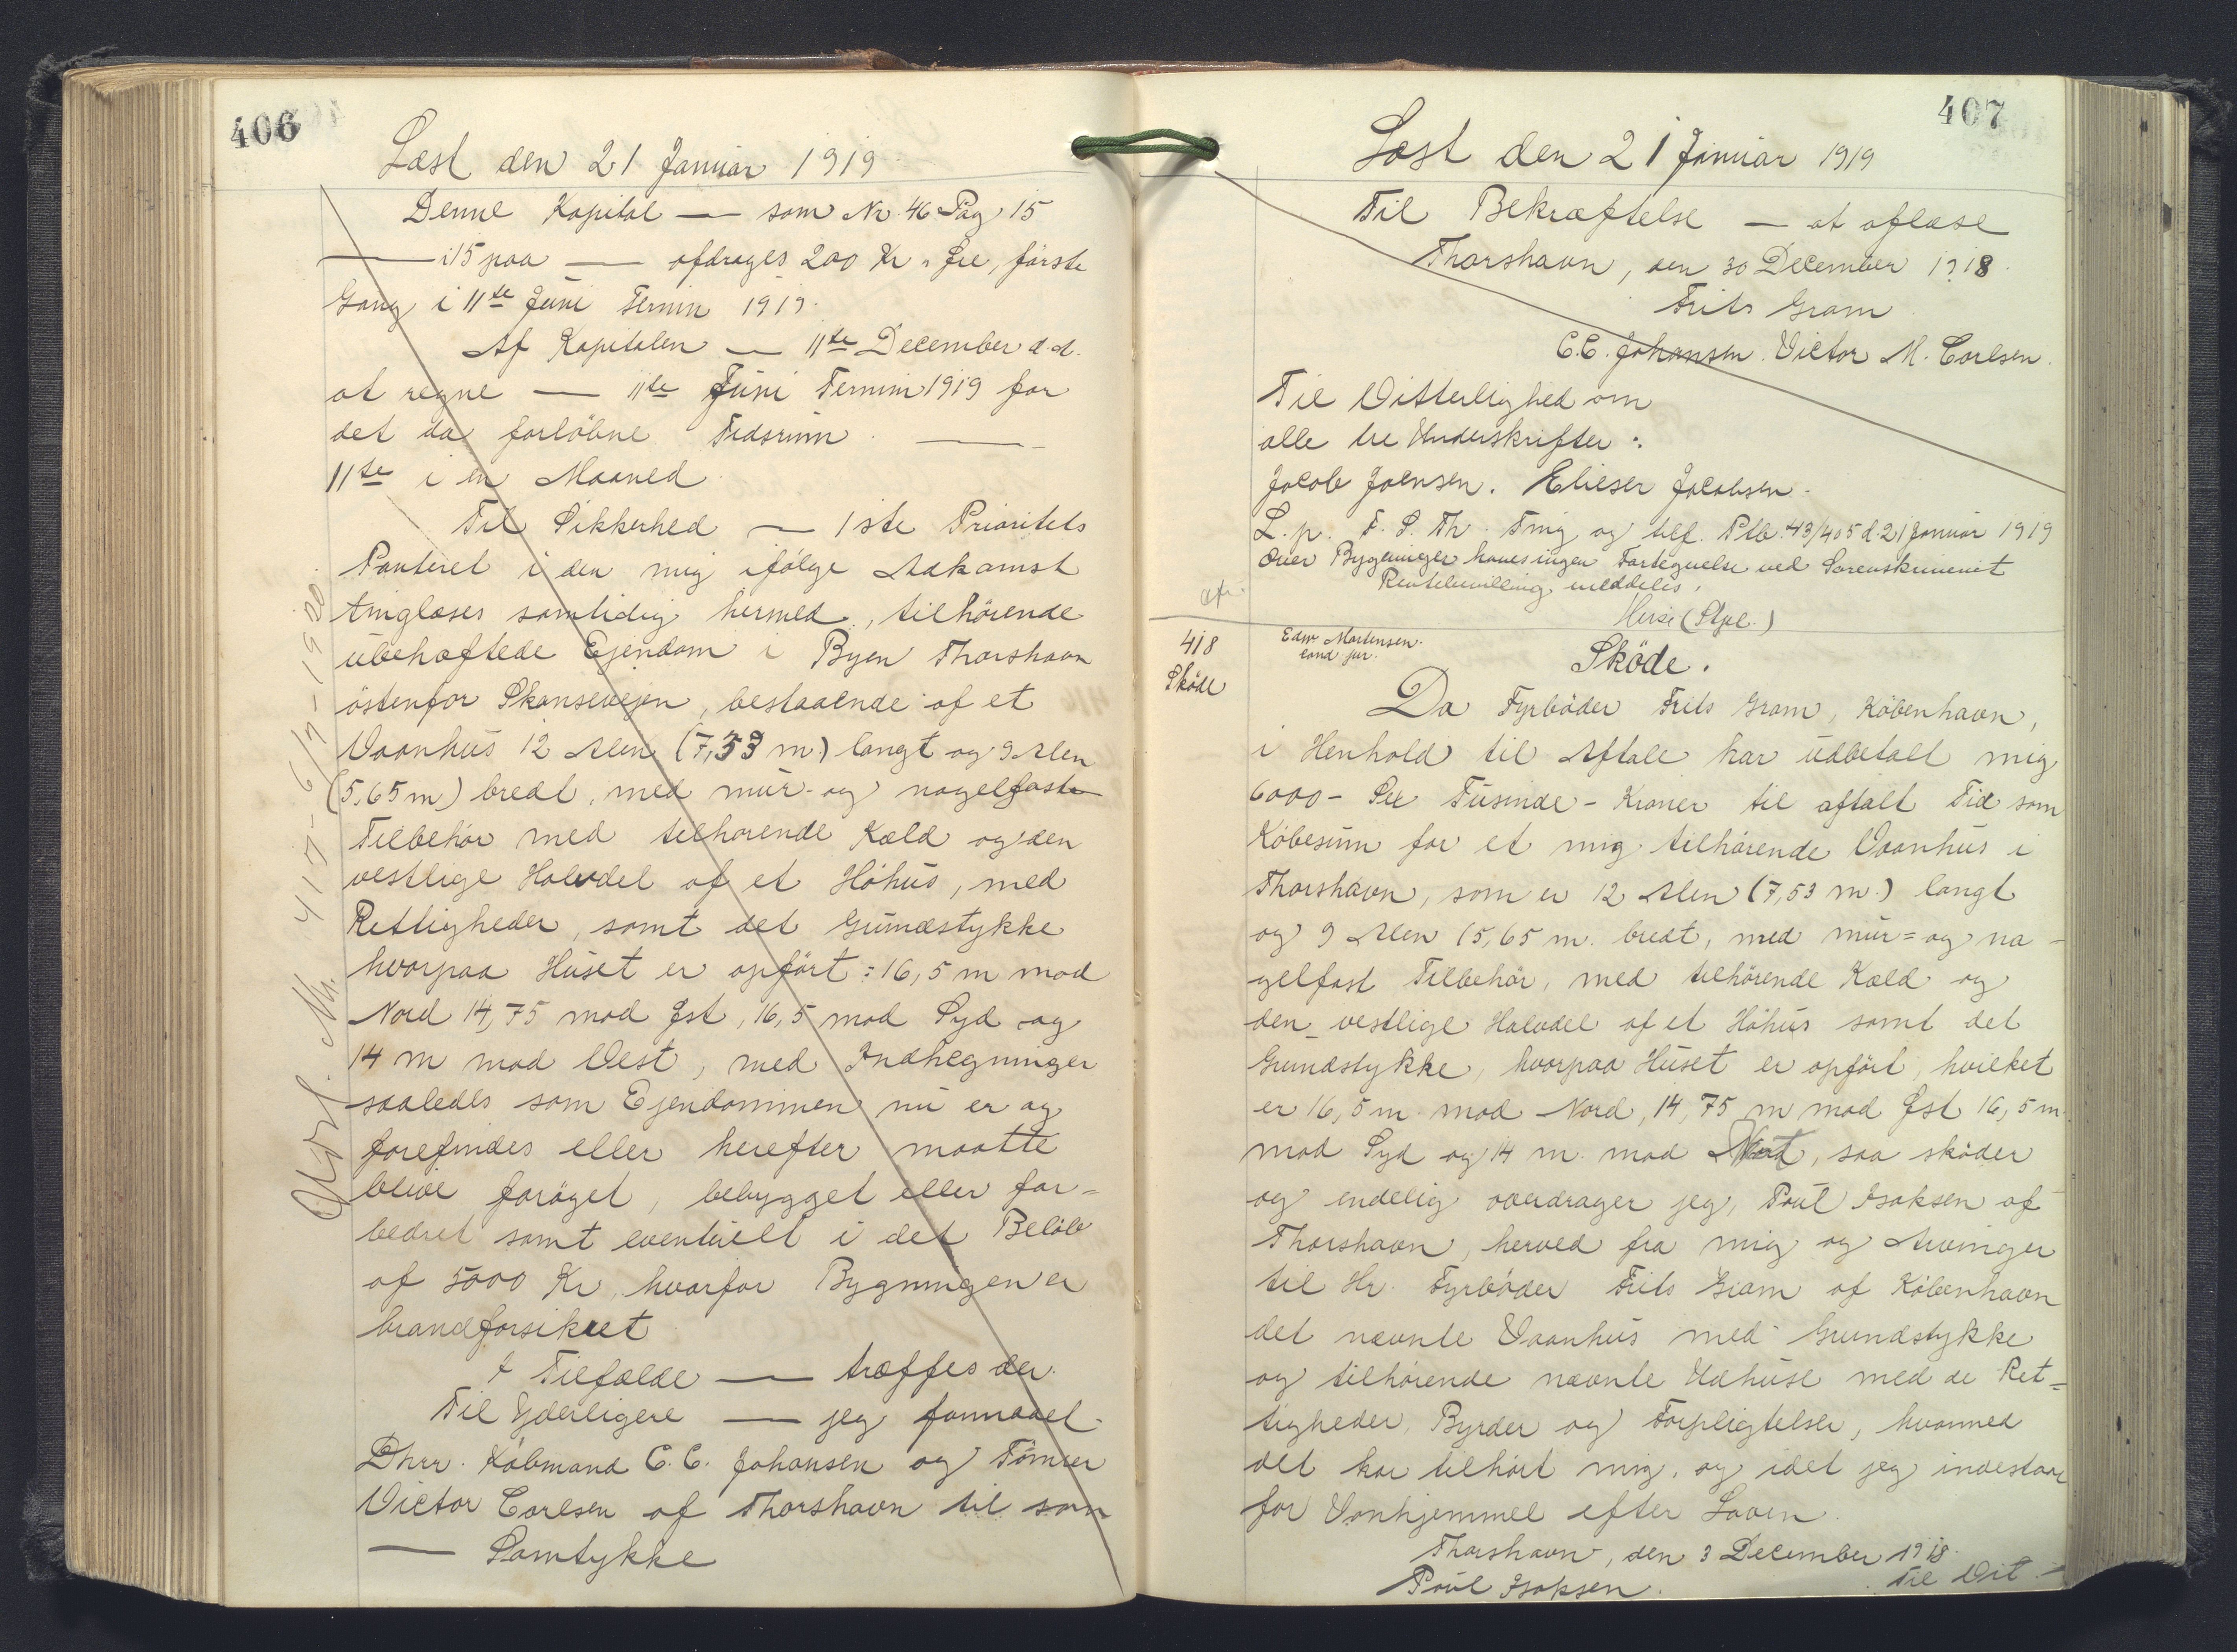 406
Læst den 21 Januar 1919
Denne Kapital — som Nr. 46 Pag 15
— i 15 paa — afdrages 200 Kr " Øre, første
Gang i 11te Juni Termin 1919.
Af Kapitalen — 11te December d.A.
at regne — 11te Juni Termin 1919 for
det da forløbne Tidsrum. —
11te i en Maaned
Til Sikkerhed — 1ste Prioritets
Panteret i den mig ifølge Adkomst
tinglæses samtidig hermed, tilhørende
ubehæftede Ejendom i Byen Thorshavn
østenfor Skansevejen, bestaaende af et
Vaanhus 12 Alen (7,53 m) langt og 9 Alen
(5,65 m) bredt, med mur- og nagelfaste
Tilbehør med tilhørende Kæld og den
vestlige Halvdel af et Höhus, med
Rettigheder, samt det Grundstykke
hvorpaa Huset er opført: 16,5 m mod
Nord 14,75 mod Øst, 16,5 mod Syd og
14 m mod Vest, med Indhegninger
saaledes som Ejendommen nu er og
forefindes eller herefter maatte
blive forøget, bebygget eller for=
bedret samt eventuelt i det Beløb
af 5000 Kr. hvorfor Bygningen er
brandforsikret
I Tilfælde — træffes der.
Til Yderligere — jeg formaaet
Dhrr. Købmand C. C. Johansen og Tømrer
Victor Carlsen af Thorshavn til som
— Samtykke
Nr. 417- 6/7- 1920.
407
Læst den 21 Januar 1919
Til Bekræftelse — at aflæse
Thorshavn, den 30 December 1918.
Frits Gram
C.C. Johansen. Victor M. Carlsen.
Til Vitterlighed om
alle tre Underskrifter:
Jacob Joensen. Elieser Jacobsen.
L. p. F. S. Th. Ting og tilf. Ptb. 43/405 d. 21 Januar 1919
Over Bygninger haves ingen Fortegnelse ved Sorenskriveriet
Rentebevilling meddeles.
(Stpl.)
afr.
418
Sköde
Edw Mortensen.
cand jur.
Sköde.
Da Fyrbøder Frits Gram, København,
i Henhold til Aftale har udbetalt mig
6000 - Sex Tusinde - Kroner til aftalt Tid som
Købesum for et mig tilhørende Vaanhus i
Thorshavn, som er 12 Alen (7,53 m.) langt
og 9 Alen (5,65 m. bredt, med mur= og na-
gelfast Tilbehør, med tilhørende Kæld og
den vestlige Halvdel af et Höhus samt det
Grundstykke, hvorpaa Huset er opført, hvilket
er 16,5 m mod Nord, 14,75 m mod Øst 16,5 m
mod Syd og 14 m. mod Vest, saa skøder
og endelig overdrager jeg, Poul Isaksen af
Thorshavn, herved fra mig og Arvinger
til Hr. Fyrbøder Frits Gram af København
det nævnte Vaanhus med Grundstykke
og tilhørende nævnte Udhuse med de Ret=
tigheder, Byrder og Forpligtelser, hvormed
det har tilhørt mig, og idet jeg indestaar
for Vanhjemmel efter Loven.
Thorshavn, den 3 December 1918.
Poul Isaksen.
Til Vit-